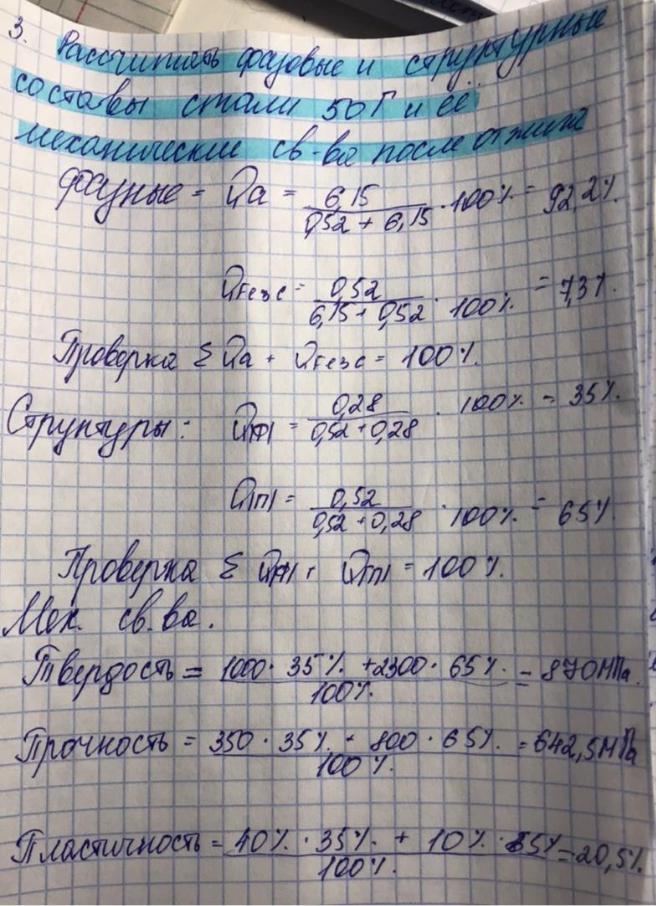 3.
Рассчитать фазовые и структурные
составы стали 50Г и её
механические св-ва после отжига
Фазные = Qа = 6,15 / 0,52 + 6,15 · 100% = 92,2%.
QFe3C = 0,52 / 6,15 + 0,52 · 100% = 7,3%.
Проверка Σ Qа + QFe3C = 100%.
Структуры: Q|Ф| = 0,28 / 0,52 + 0,28 · 100% = 35%.
Q|П| = 0,52 / 0,52 + 0,28 · 100% = 65%
Проверка Σ Q|Ф| + Q|П| = 100%.
Мех. св.ва.
Твердость = 1000 · 35% + 2300 · 65% / 100% = 870МПа
Прочность = 350 · 35% + 800 · 65% / 100% = 642,5МПа
Пластичность = 40% · 35% + 10% · 65% / 100% = 20,5%